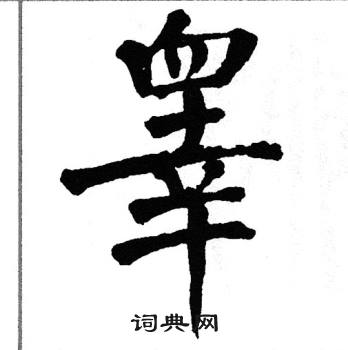 睪
词典网